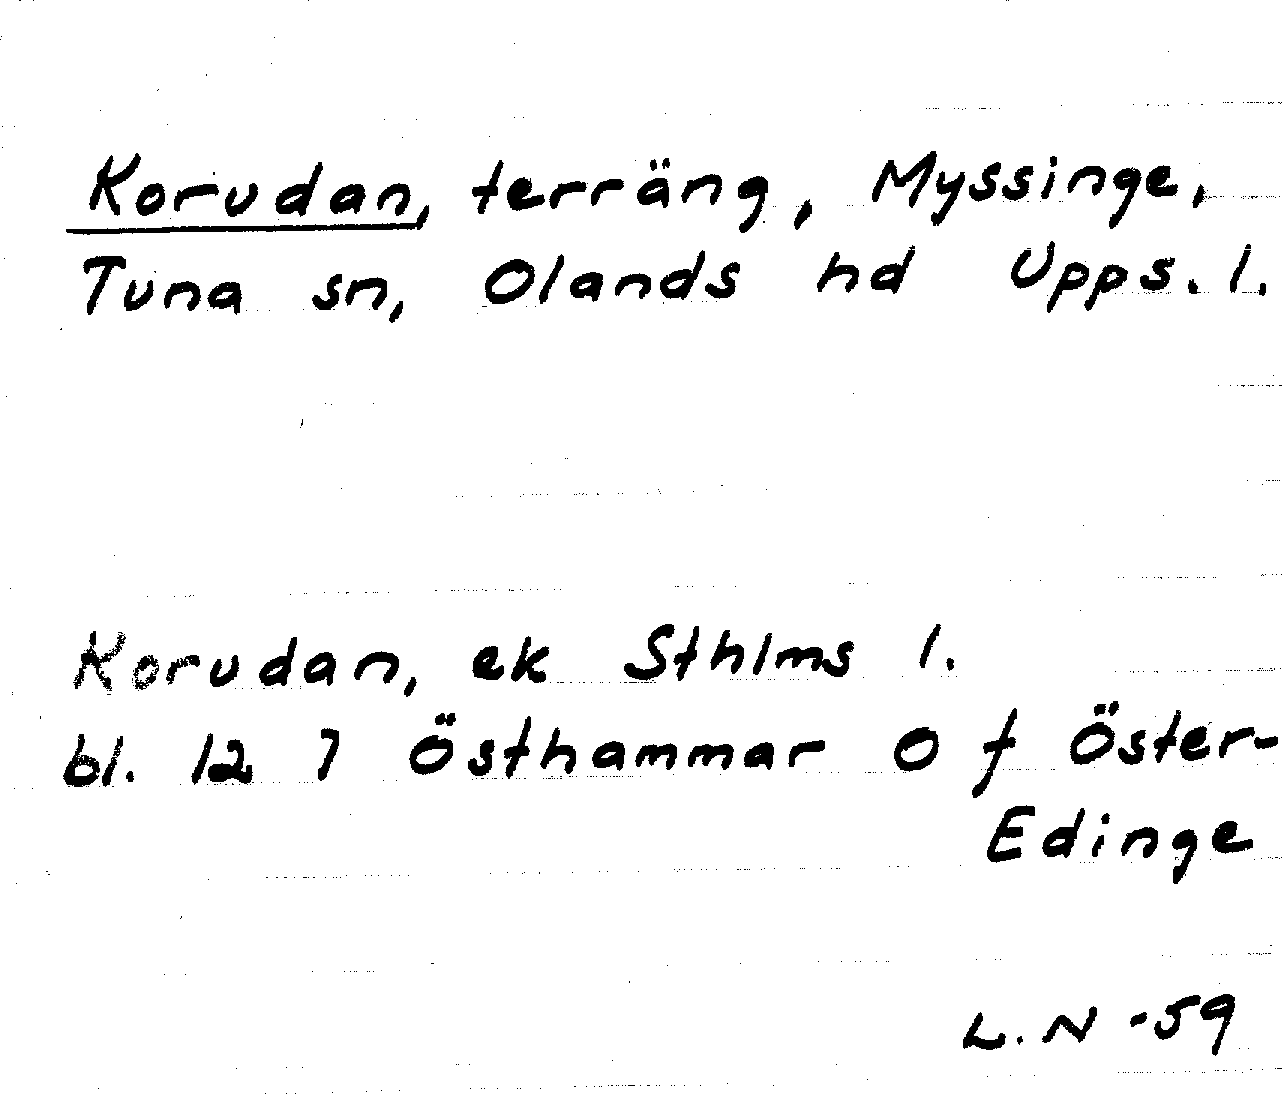 Korudan, terräng, Myssinge,
Tuna sn, Olands hd Upps. l.
Korudan, ek Sthlms l.
bl. 12 7 Östhammar O f Öster-
Edinge
L.N -59